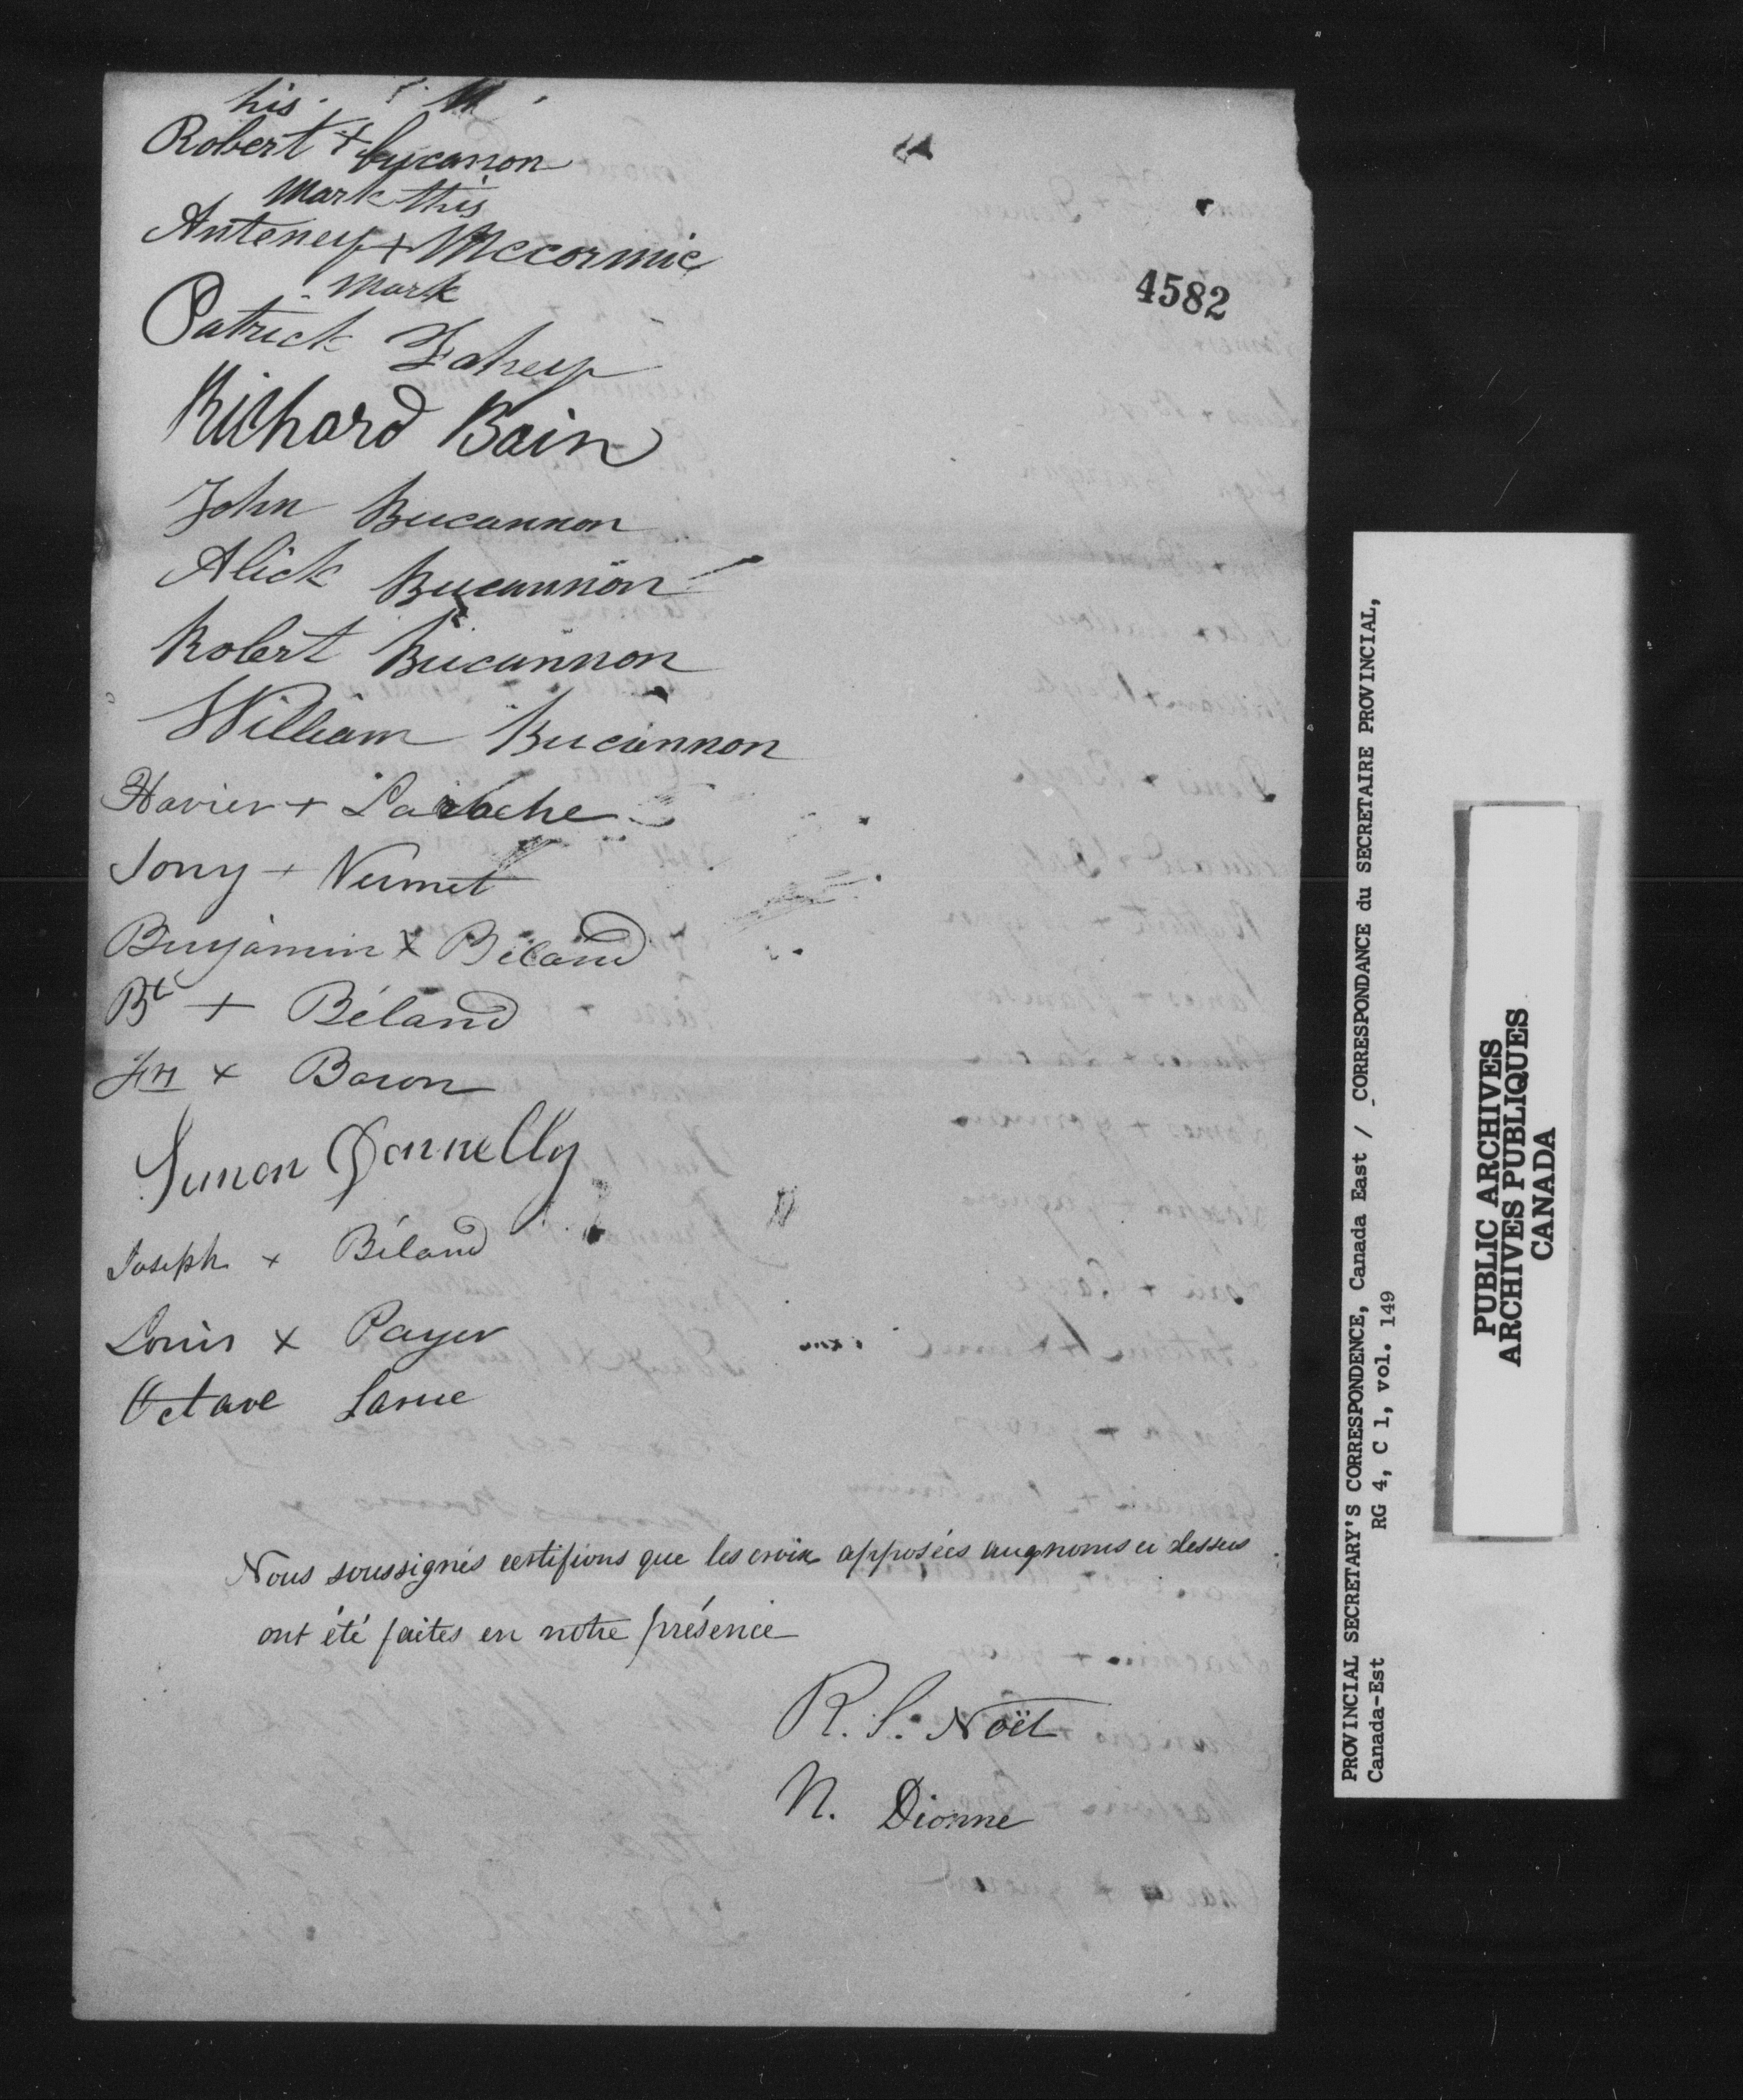 his
Robert + Bucanon
Mark this
Anteney + Mccormic
Mark
Patrick Fahey
Richard Bain
John Bucannon
Alick Bucannon
Robert Bucannon
William Bucannon
Xavier + Laroche
Tony +
Benjamin x Béland
Bte + Béland
x Baron
Simon Donnelly
Joseph x Béland
Louis x Payer
Octave Larue
Nous soussignés certifions que les croix apposées aux noms ci dessus
ont été faites en notre présence
R. S. Noël
N. Dionne
4582
PROVINCIAL SECRETARY'S CORRESPONDENCE, Canada East / CORRESPONDANCE du SECRETAIRE PROVINCIAL,
Canada-Est RG 4, C 1, vol. 149
PUBLIC ARCHIVES
ARCHIVES PUBLIQUES
CANADA